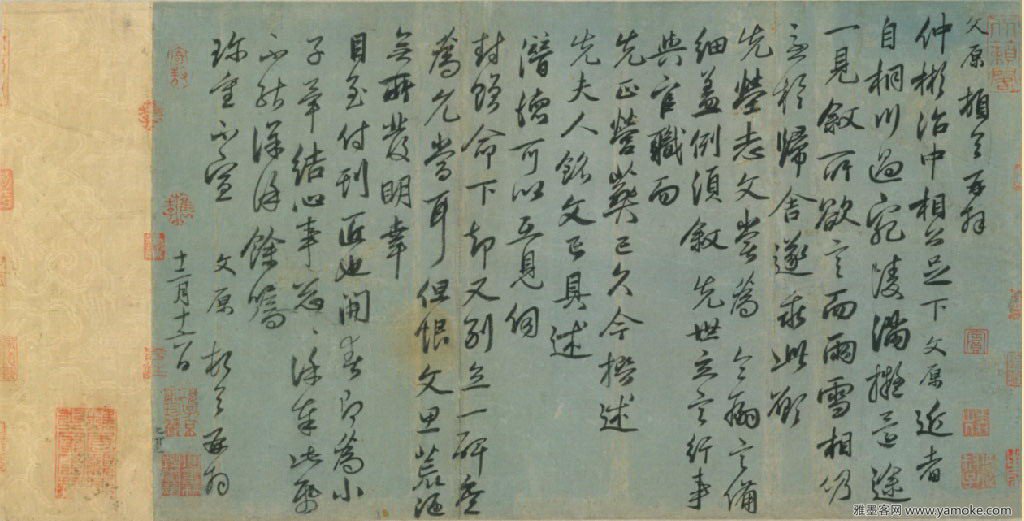 文原頓首再拜
仲彬治中相公足下文原近者
自桐川過宛陵滿擬意途
一見敘所欲言而雨雪相仍
於歸舍遂乖此願
先塋志文嘗為令嗣言備
細蓋例須敘先世立言行事
與官職而
先正塋葬已久今撥述
先夫人銘文正具述
潛德可以互見伺
封贈命下却又別立一碑庶
為允當耳但恨文思荒陋
無所發明幸
目至付刊匠也開春即為小
子畢結心事忽、深奉此帋
不能深詳餘
珍重不宣
文原頓首再拜
十二月十二日
雅墨客网 www.yamoke.com